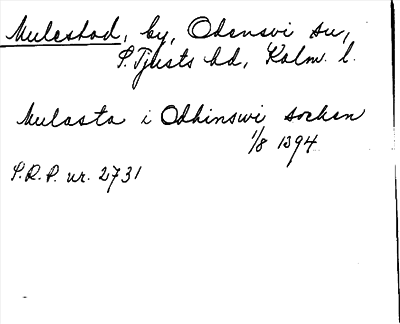 Mulestad, by, Odensvi sn,
S. Tjusts hd, Kalm. l.
Mulasta i Odhinswi socken
1/8 1394
S.R.P. nr. 2731